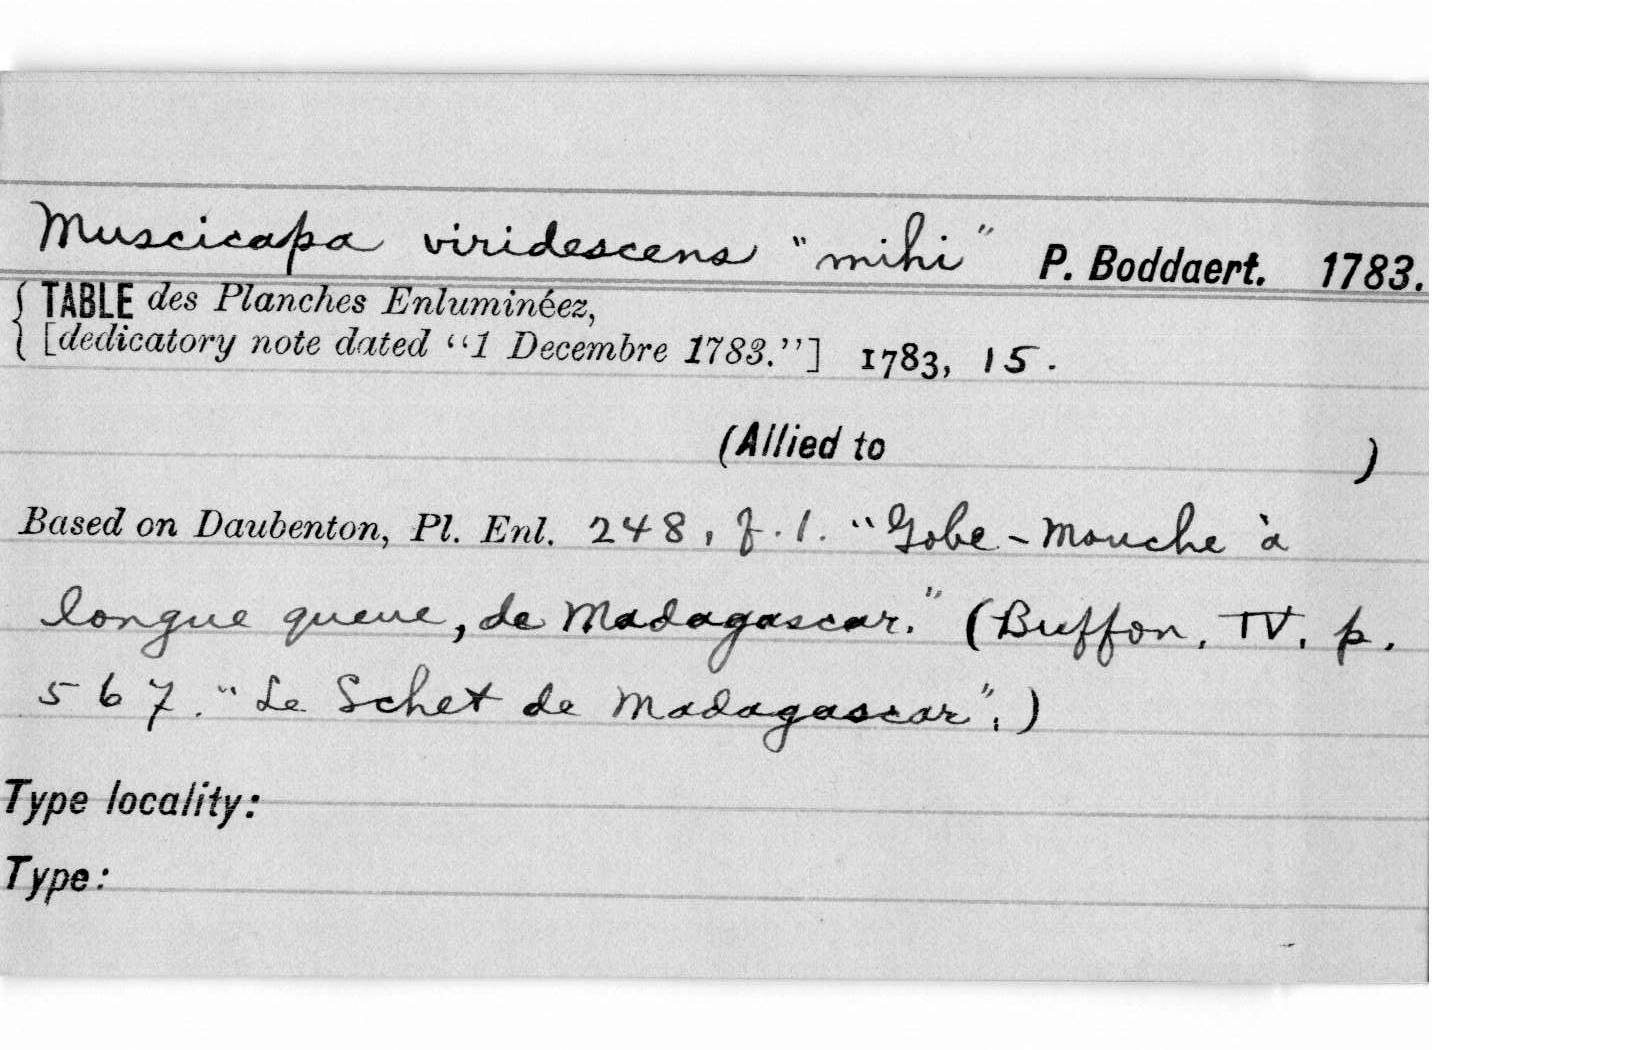 Muscicapa viridescens "mihi" P. Boddaert. 1783.
{ TABLE des Planches Enluminéez,
[dedicatory note dated "1 Decembre 1783."] 1783, 15.
(Allied to )
Based on Daubenton, Pl. Enl. 248, f.1. "Gobe-Mouche à
longue queue, de Madagascar." (Buffon, IV. p.
567. "Le Schet de Madagascar".)
Type locality:
Type: